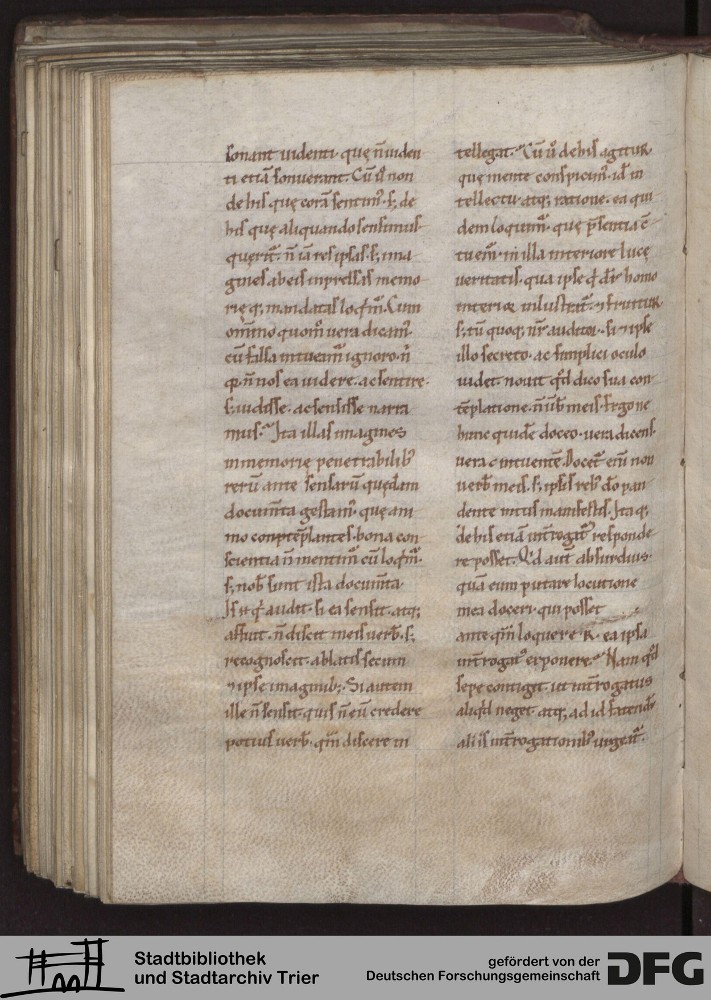 sonant uidenti· quę n̄ uiden
ti etiā sonuerant. Cū ũ non
de his quę corā sentim᷒· s; de
his quę aliquando sensimus
querit᷑· n̄ iā res ipsas· s; ima
gines ab eis inpressas memo
rię q; mandatas loq̄m᷒. Cum
omnino quom̊ uera dicam᷒
cū falsa intueam᷒ ignoro· n̄
qꝫ n̄ nos ea uidere· ac sentire·
s; uidisse· ac sensisse narra
mus· Ita illas imagines
in memorię penetrabilib᷒
rerū ante sensarū quędam
documta gestam᷒· quę ani
mo contēplantes· bona con
scientia n̄ mentim᷒ cū loq̄m᷒·
s; nob̄ sunt ista documta
Is .n. q̇ audit· si ea sensit· atq;
affuit· n̄ discit meis uerb̄· s;
recognoscit· ablatis secum
⁊ ipse imaginib;· Si autem
ille n̄ sensit· quis n̄ eū credere
potius uerb̄· qm̄ discere in
tellegat· Cū ũ de his agitur·
quę mente conspicim᷒· id ē in
tellectu atq; ratione· ea qui
dem loquim᷒· quę p̄sentia ē
tuem᷒· in illa interiore luce
ueritatis· qua ipse q̇ dr̄ homo
interior inlustrat᷑· ⁊ fruitur·
s; tū quoq; nr̄ auditor· si ⁊ ipse
illo secreto· ac simplici oculo
uidet· nouit qd̄ dico sua con
tēplatione· n̄ uerb̄ meis· Ergo ne
hunc quidē doceo· uera dicens·
uera intuentē. Docet᷑ enī non
uerb̄ meis· s; ipsis reb᷒ dō pan
dente intus manifestis. Itaq;
de his etiā int̄rogat᷒ responde
re posset. Qd̄ aut̄ absurdius·
quā eum putare locutione
mea doceri· qui posset
ante qm̄ loquerer· ea ipsa
int̄rogat᷒ exponere· Nam qd̄
sepe contigit· ut int̄rogatus
aliqd̄ neget· atq; ad id fatendū
aliis int̄rogationib᷒ urgeat᷑·
Stadtbibliothek
und Stadtarchiv Trier
gefördert von der
Deutschen Forschungsgemeinschaft
DFG